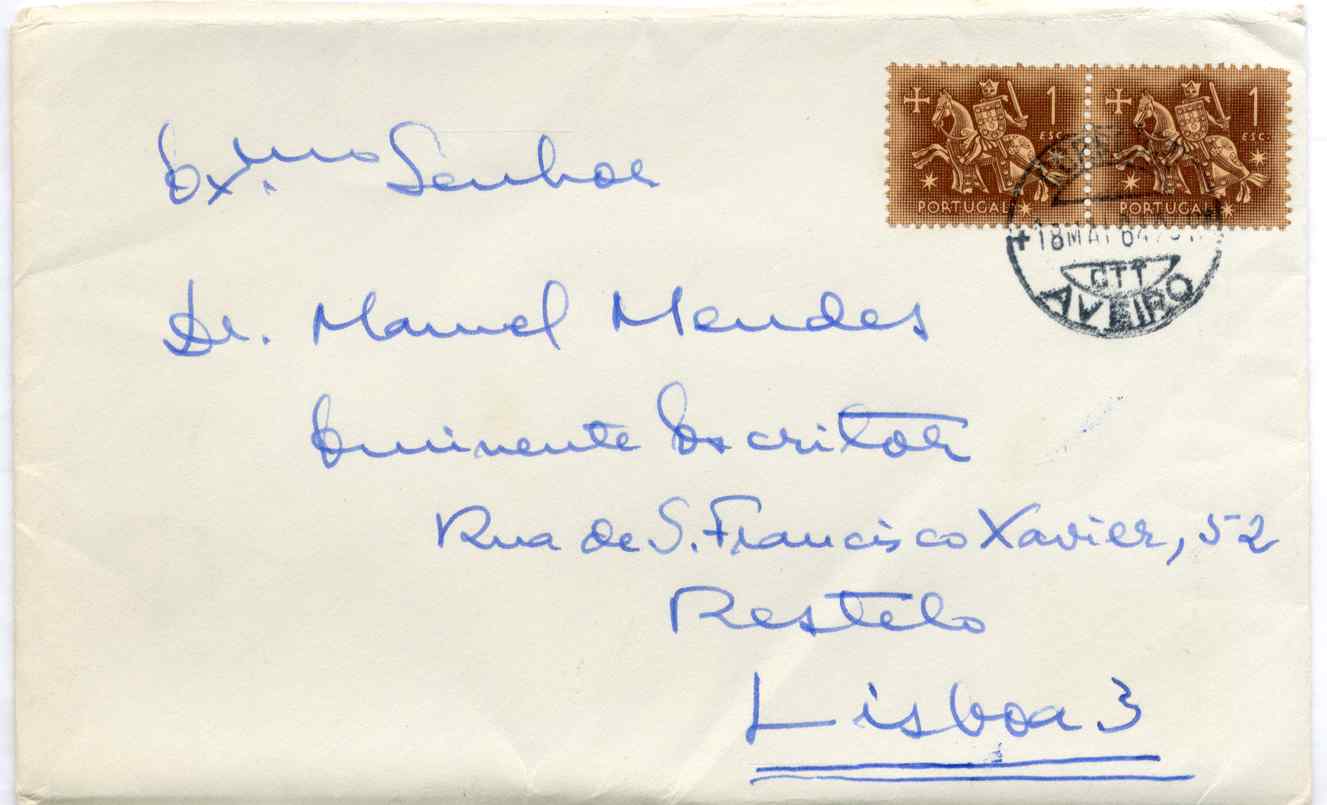 1 ESC. 1 ESC.
PORTUGAL PORTUGAL
18 MAI 64
CTT
AVEIRO
Ex.mo Senhor
Dr. Manuel Mendes
Eminente Escritor
Rua de S. Francisco Xavier, 52
Restelo
Lisboa 3